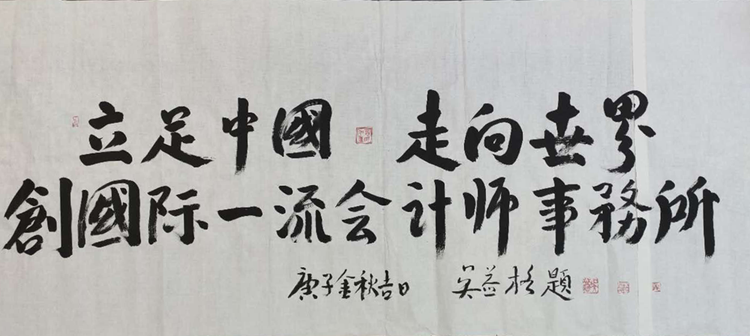 立足中國 走向世界
創國际一流会计师事務所
庚子金秋吉日 吴益格題